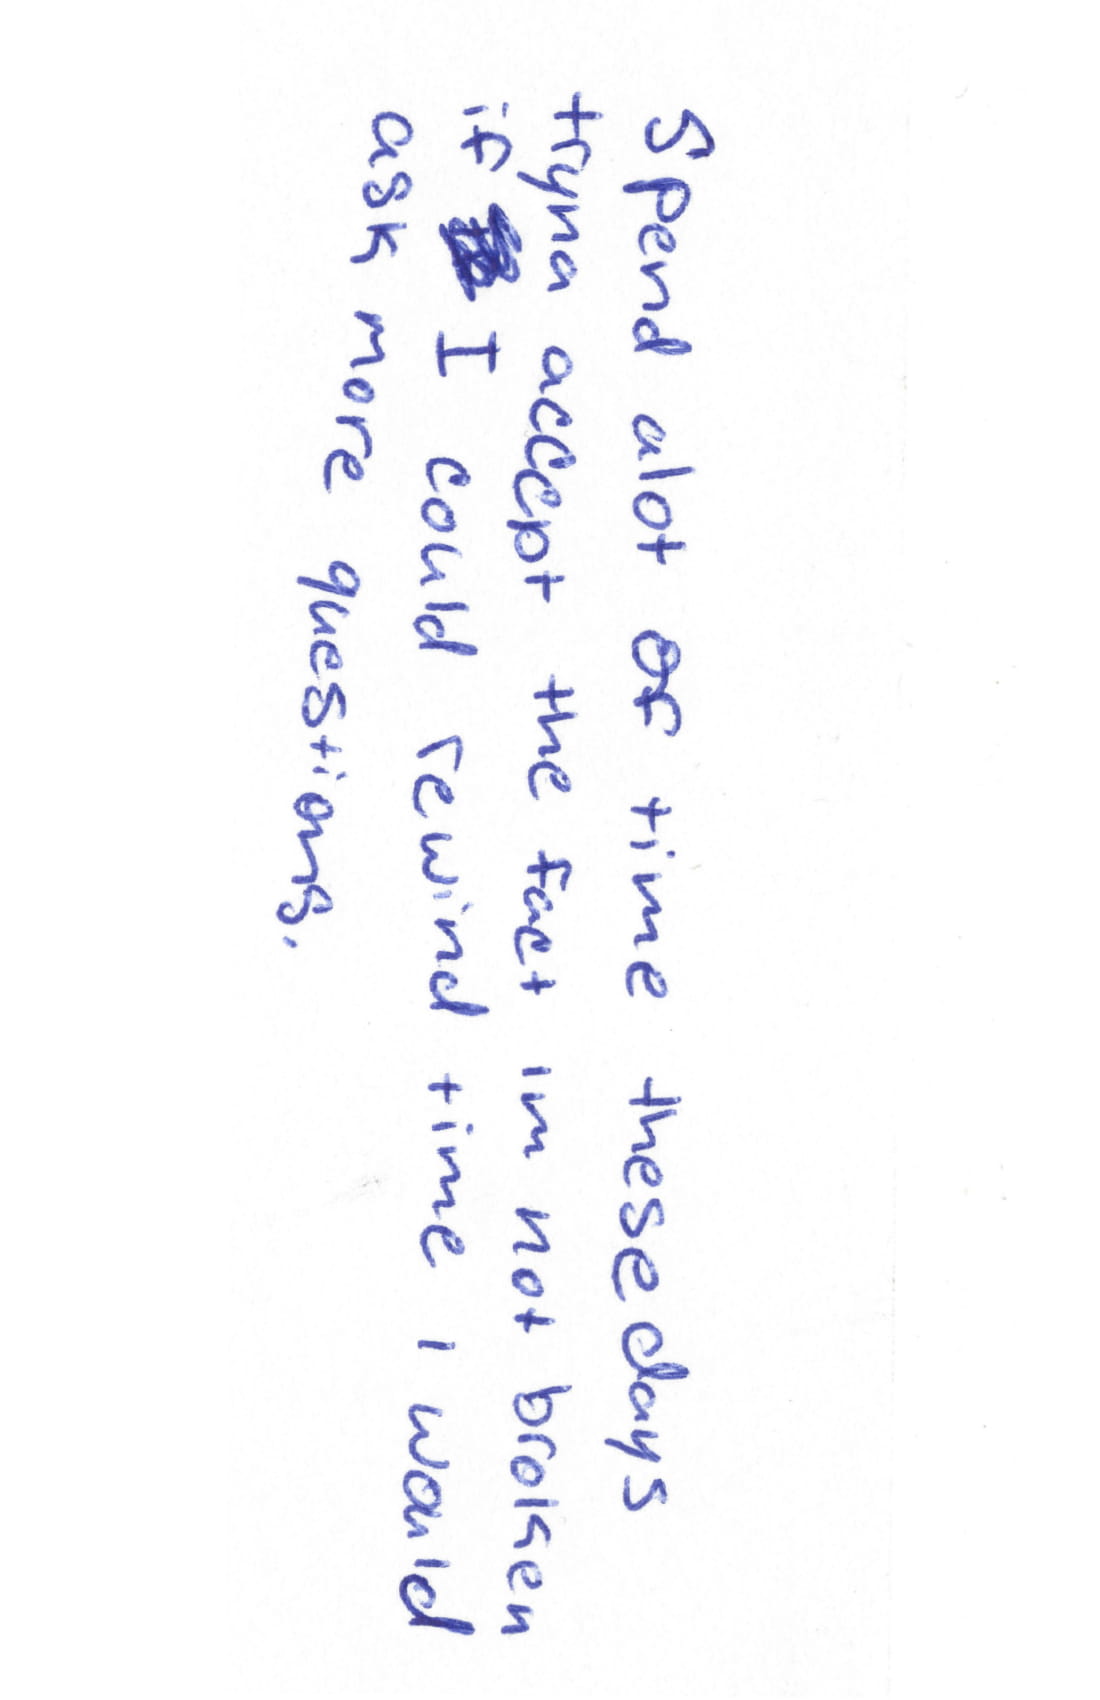 Spend alot of time these days
tryna accept the fact im not broken
if I could rewind time I would
ask more questions.